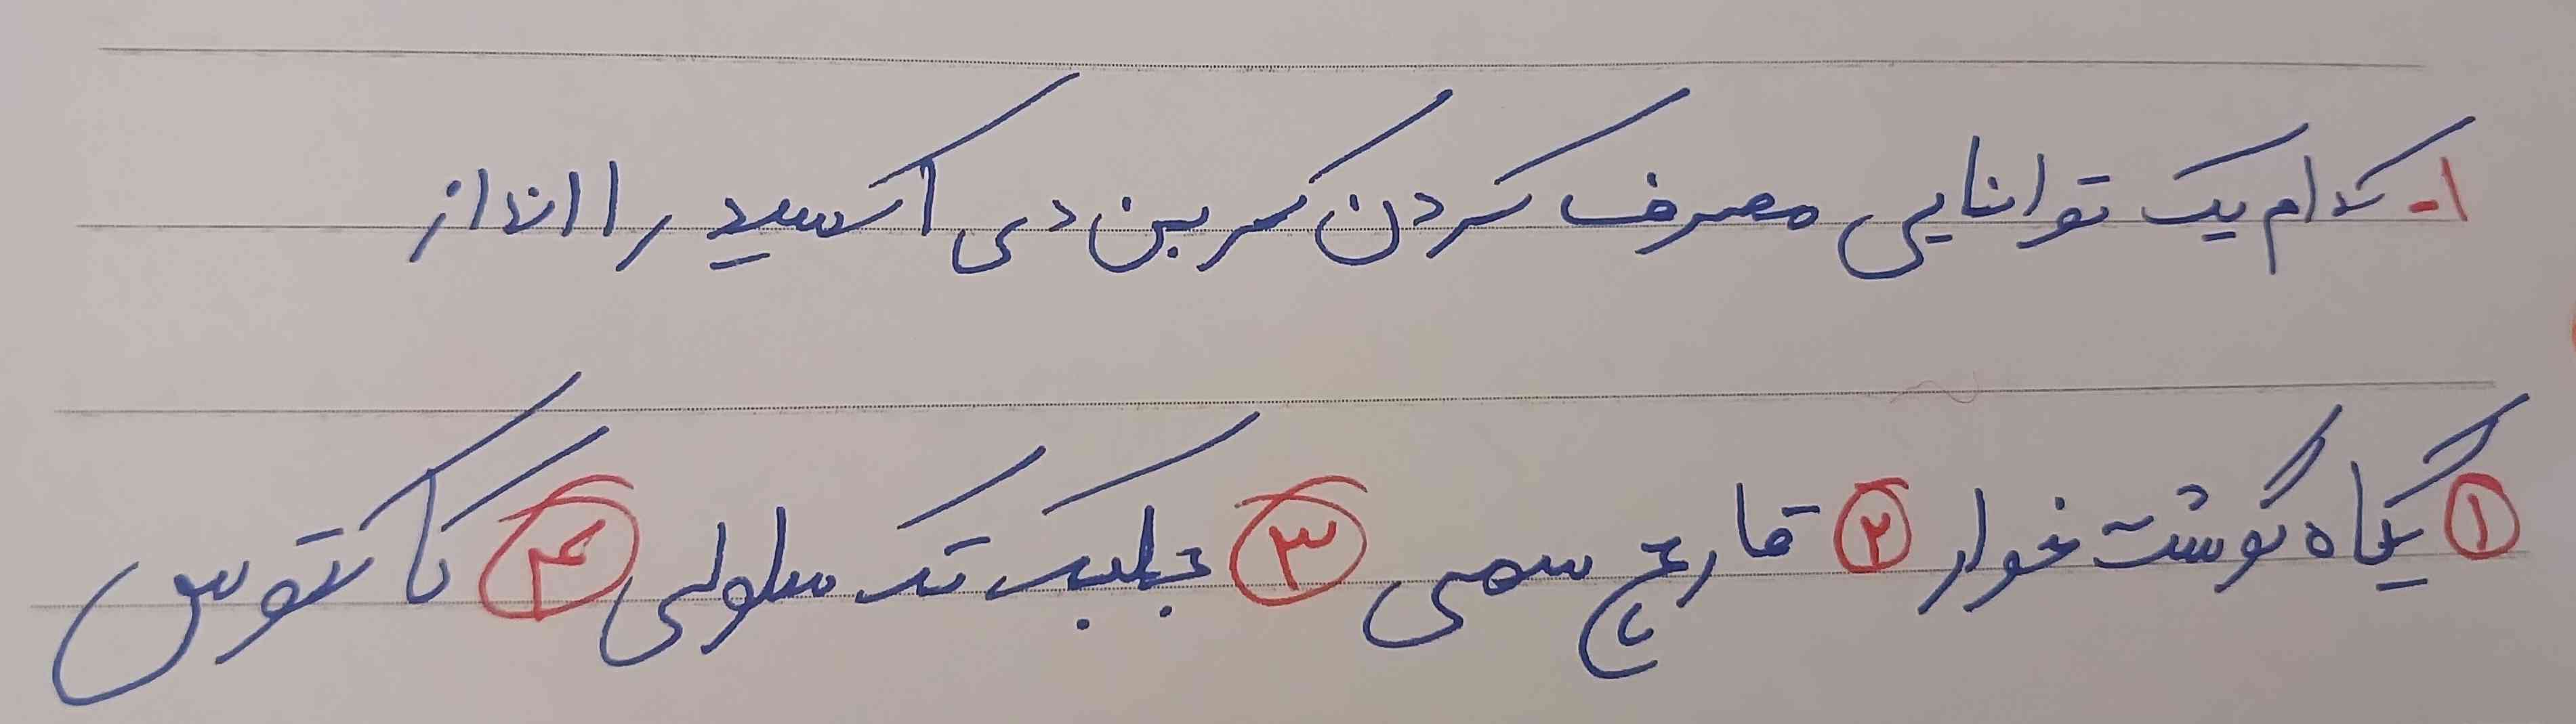 ۱- کدام یک توانایی مصرف کردن کربن دی اکسید را انداز
۱ گیاه گوشت خوار ۲ قارچ سمی ۳ جلبک تک سلولی ۴ کاکتوس